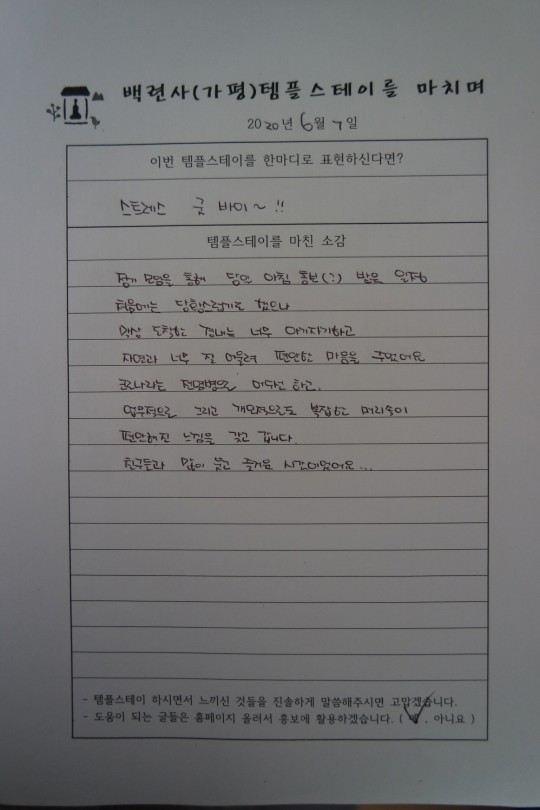 백련사(가평)템플스테이를 마치며
2020년 6월 7일
이번 템플스테이를 한마디로 표현하신다면?
스트레스 굿 바이~!!
템플스테이를 마친 소감
정기 모임을 통해 당일 아침 통보(?) 받은 일정
처음에는 당황스럽기도 했으나
막상 도착한 경내는 너무 아기자기하고
자연과 너무 잘 어울려 편안한 마음을 주었어요
코로나라는 전염병으로 어수선하고.
업무적으로 그리고 개인적으로도 복잡한 머리속이
편안해진 느낌을 갖고 갑니다.
친구들과 많이 웃고 즐거운 시간이었어요...
- 템플스테이 하시면서 느끼신 것들을 진솔하게 말씀해주시면 고맙겠습니다.
- 도움이 되는 글들은 홈페이지 올려서 홍보에 활용하겠습니다. ( 예 , 아니요 )